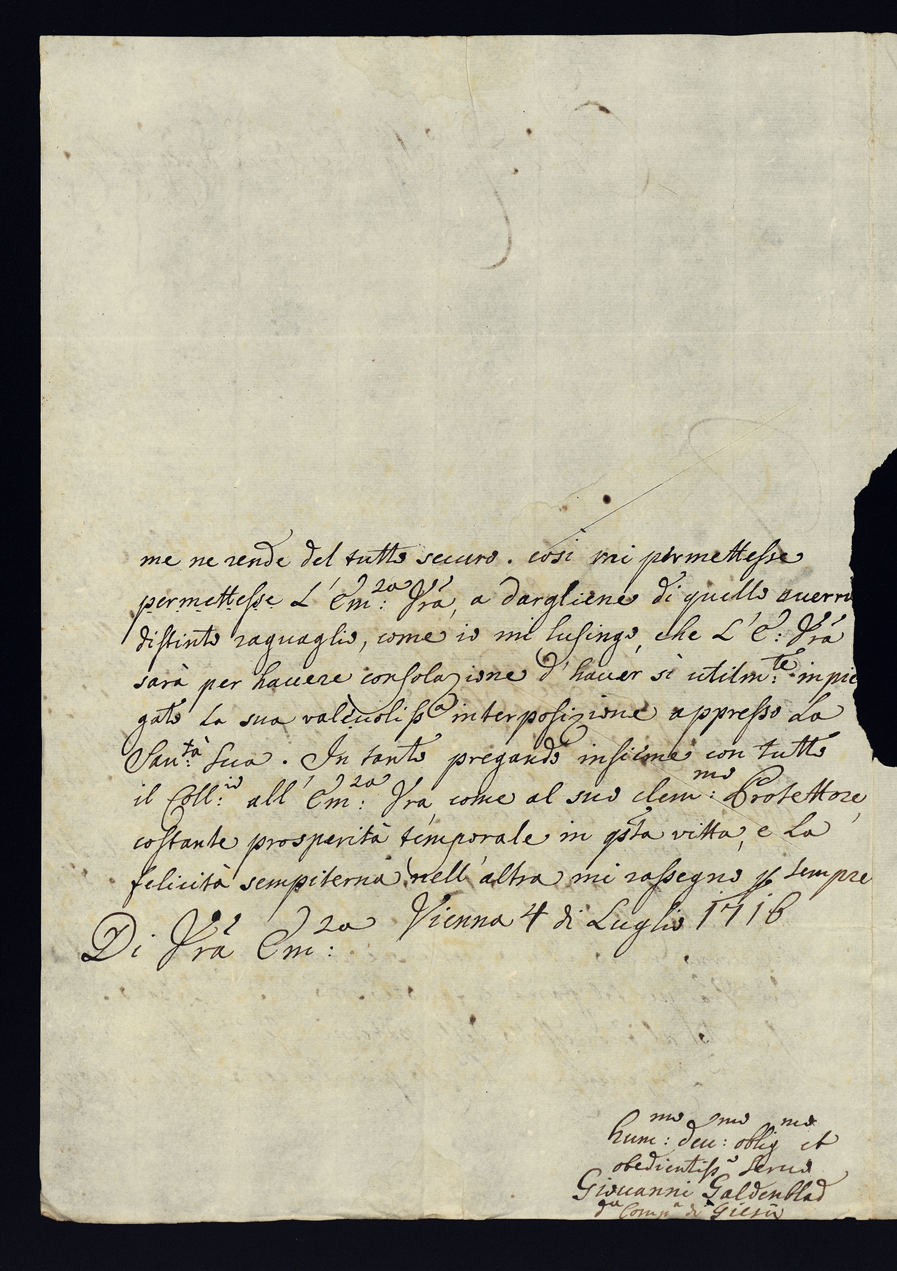 me ne rende del tutto securo. così mi permettesse
permettesse L'Em:za Vrã, a dargliene di quello auerrà
distinto raguaglio, come io mi lusingo, che L'E: Vrã
sarà per hauere consolazione d'hauer sì utilm:te impie
gato La sua valeuoliss:a interposizione appresso La
San:tà Sua. In tanto pregando insieme con tutto
il Coll:io all'Em:za Vrã come al suo clem:mo Protettore,
costante prosperità temporale in qsta vitta, e La
felicità sempiterna nell'altra mi rassegno p sempre
Vienna 4 di Luglio 1716
Di Vrã Em:za
hum:mo deu:mo oblig:mo et
obedientiss:o Seruo
Giouanni Galdenblad
d:a Comp:a di Giesù